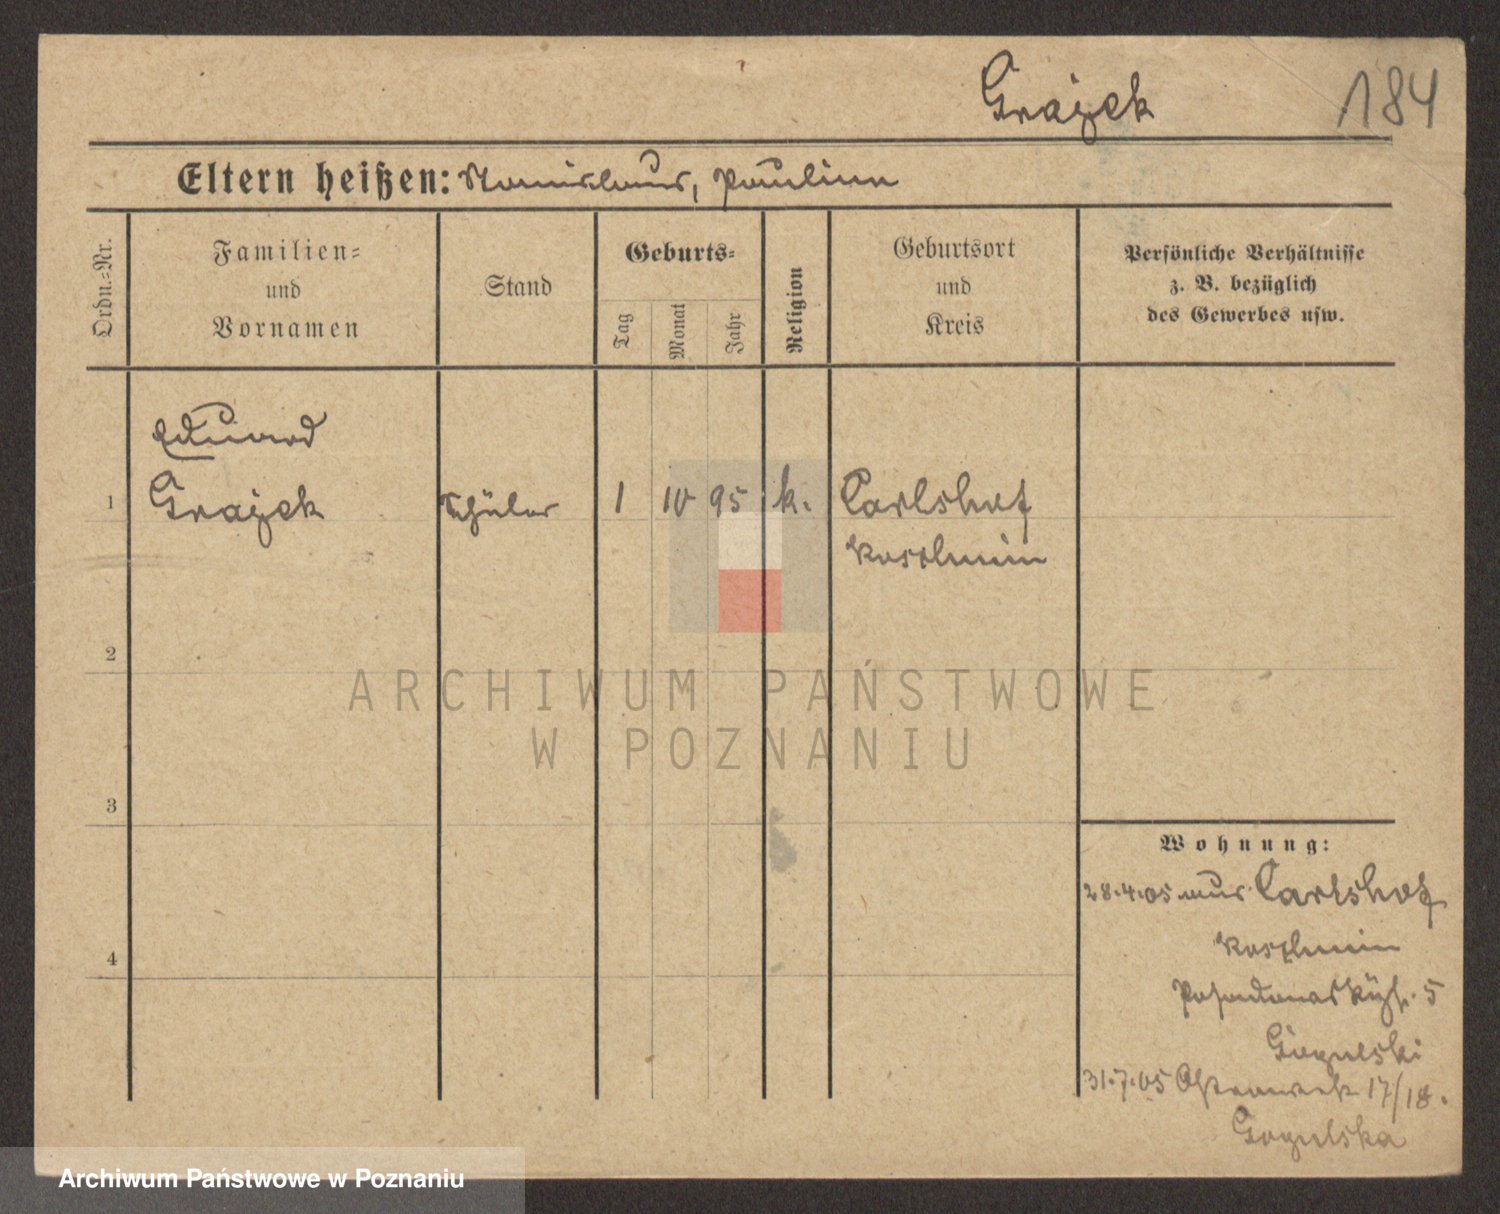 Grajek 184
Eltern heißen: Stanislaus, Pauline
Ordn.-Nr.
Familien-
und
Vornamen
Stand
Geburts-
Tag
Monat
Jahr
Religion
Geburtsort
und
Kreis
Persönliche Verhältnisse
z. B. bezüglich
des Gewerbes usw.
Eduard
1 Grajek Schüler 1 10 95 k. Carlshof
Koschmin
2
3
4
Wohnung:
28.4.05 aus Carlshof
Koschmin
5
Gogulski
31.7.05 17/18.
Gogulska
ARCHIWUM PAŃSTWOWE
W POZNANIU
Archiwum Państwowe w Poznaniu